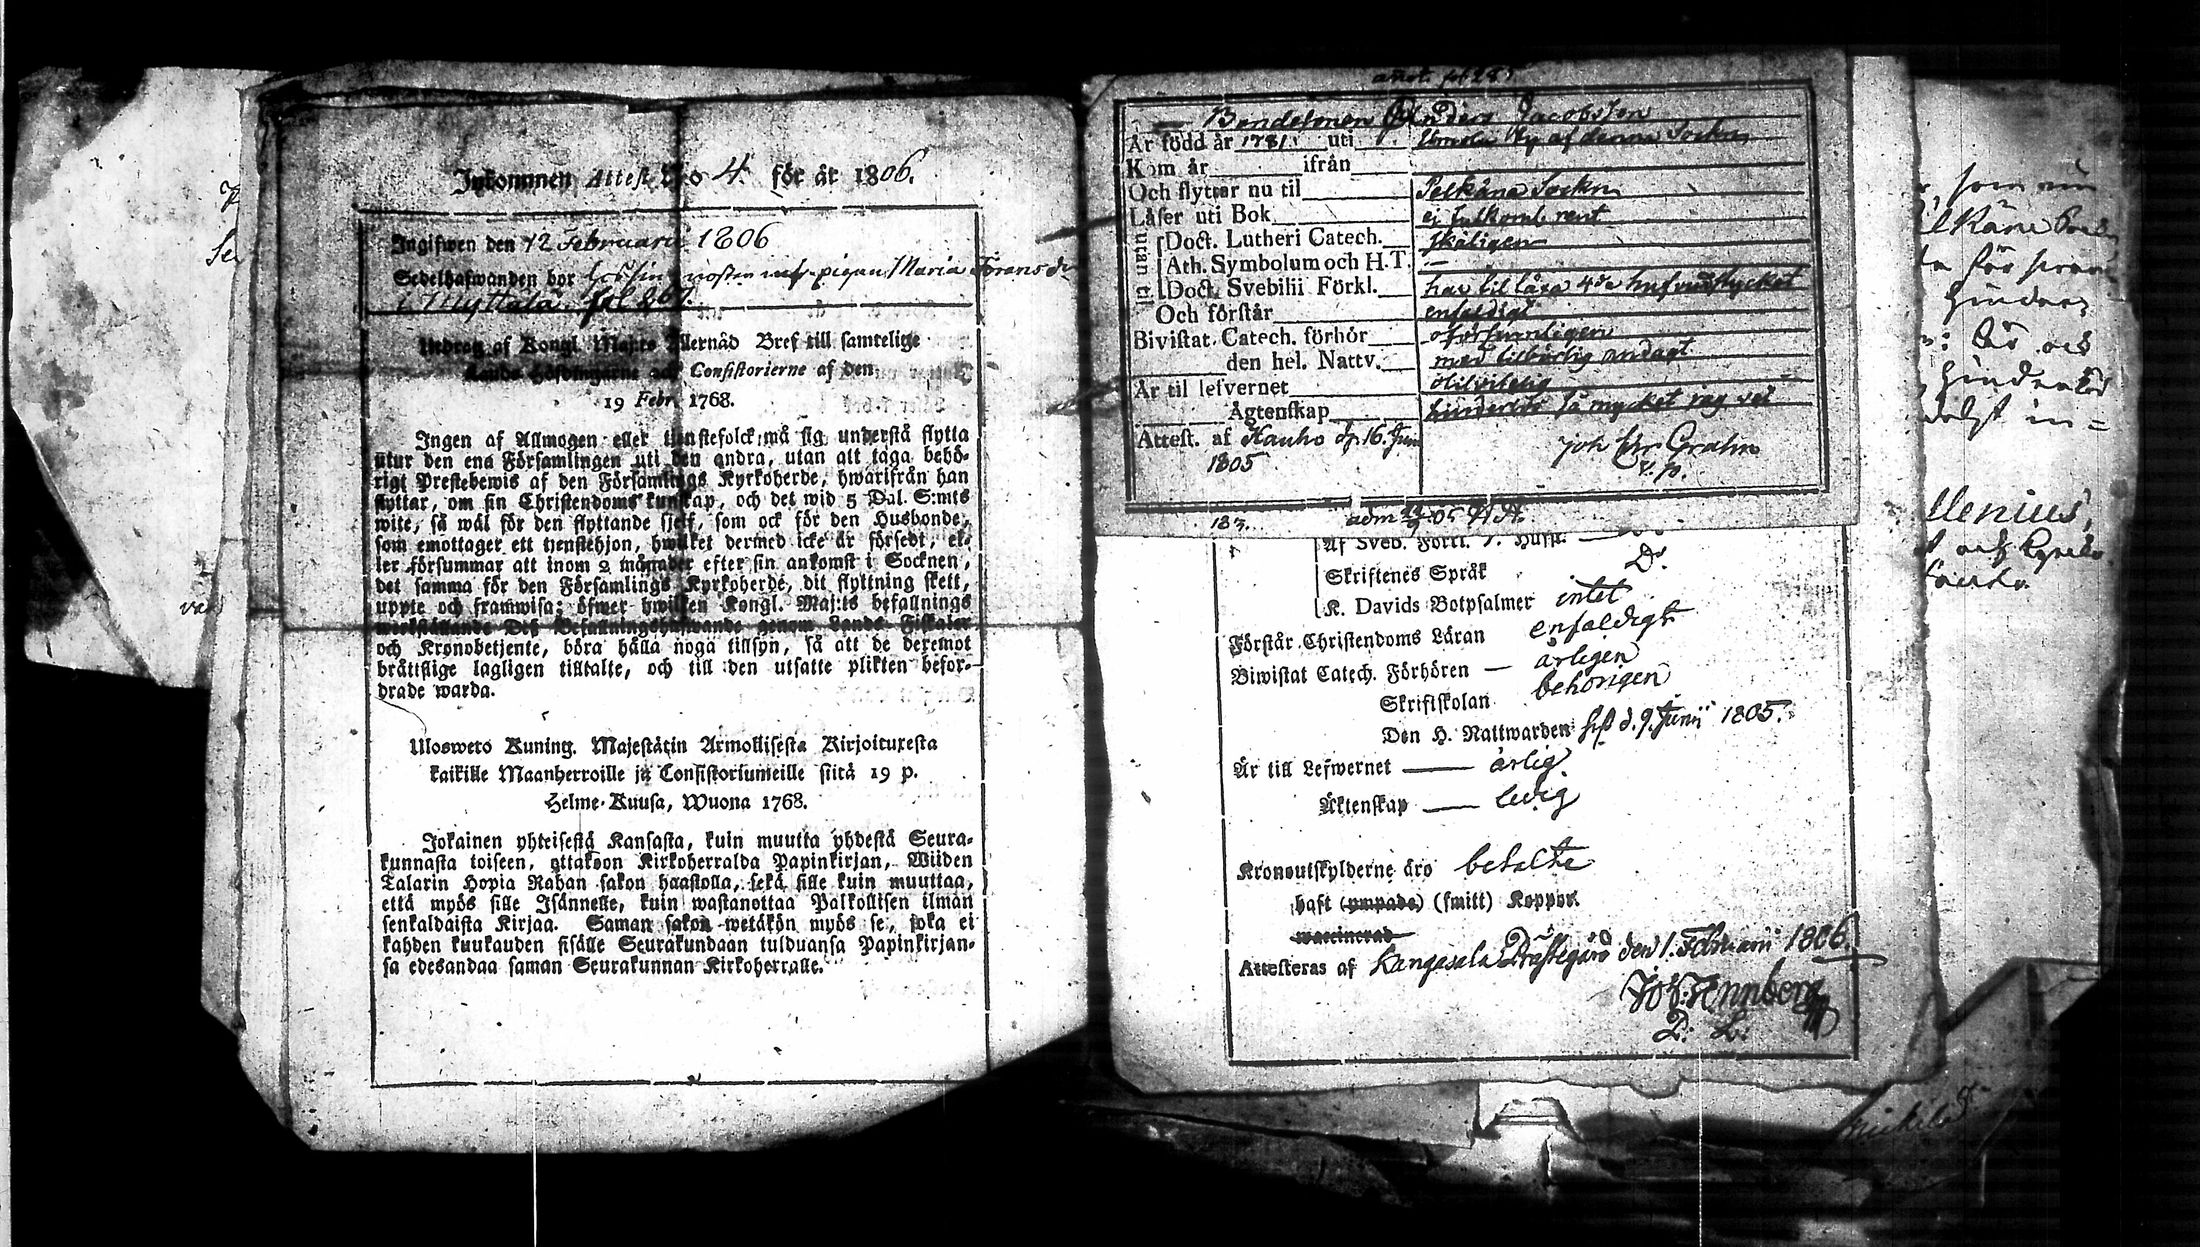 Inkommen Attest No 4. för år 1806.
Ingifwen den 12 Februarii 1806
Sedelhafwanden bor hos sin moster pigan Maria
i Myttälä. fol 867.
Utdrag af Kongl. Maj:ts Allernåd Bref till samtelige
Lands Höfdingarne och Consistorierne af den
19 Febr. 1768.
Ingen af Allmogen eller tjenstefolck må sig understå flytta
utur den ena Församlingen uti den andra, utan att taga behö-
rigt Prestebewis af den Församlings Kyrkoherde, hwarifrån han
flyttar, om sin Christendoms kunskap, och det wid 5 Dal. S:mts
wite, så wäl för den flyttande sjelf, som ock för den Husbonde,
som emottager ett tjenstehjon, hwilket dermed icke är försedt, el-
ler försummar att inom 2 månader efter sin ankomst i Socknen,
det samma för den Församlings Kyrkoherde, dit flyttning skett,
uppte och framwisa; öfwer hwilken Kongl. Maj:ts befallnings
werkställande Dess Befallningshafwande genom Lands Fiskaler
och Kronobetjente, böra hålla noga tillsyn, så att de deremot
bråttslige lagligen tilltalte, och till den utsatte plikten befor-
drade warda.
Ulosweto Kuning. Majestätin Armollisesta Kirjoituxesta
kaikille Maanherroille ja Consistoriumeille siitä 19 p.
Helme-Kuusa, Wuona 1768.
Jokainen yhteisestä Kansasta, kuin muutta yhdestä Seura-
kunnasta toiseen, ottakoon Kirkoherralda Papinkirjan, Wiiden
Talarin Hopia Rahan sakon haastolla, sekä sille kuin muuttaa,
että myös sille Isännelle, kuin wastanottaa Palkollisen ilman
senkaldaista Kirjaa. Saman sakon wetäkön myös se, joka ei
kahden kuukauden sisälle Seurakundaan tulduansa Papinkirjan-
sa edesandaa saman Seurakunnan Kirkoherralle.
annot. fol 285
Bondesonen Anders Jacobsson
Är född år 1781. uti Onnola By af denna Sockn
Kom år ifrån
Och flyttar nu til Pelkäne Sockn
Läser uti Bok ej fulkoml. rent
utan til
Doct. Lutheri Catech. skäligen
Ath. Symbolum och H.T. —
Doct. Svebilii Förkl. har til läxa 4de hufvudstycket
Och förstår enfaldigt
Bivistat Catech. förhör oförsumligen
den hel. Nattv. med tilbörlig andagt
Är til lefvernet otilvitelig
Ägtenskap hinderlös så mycket jag vet
Attest. af Kauho d. 16. Juni
1805
Joh Chr Grahn
v. p.
183. adm 05
Af Sveb. Förkl. 1. Hufst.
Do
Skriftenes Språk
K. Davids Botpsalmer intet
Förstår Christendoms Läran enfaldigt
Biwistat Catech. Förhören — årligen
Skriftskolan behörigen
Den H. Nattwarden sist d. 9. Junii 1805.
Är till Lefwernet — ärlig
Äktenskap — ledig
Kronoutskylderne äro betalte
haft (ympade) (smitt) Koppor.
waccinerad
Attesteras af Kangasala Prästegård den 1. Februarii 1806.
P. L.
som nu
för
hinder
och
in=
llenius,